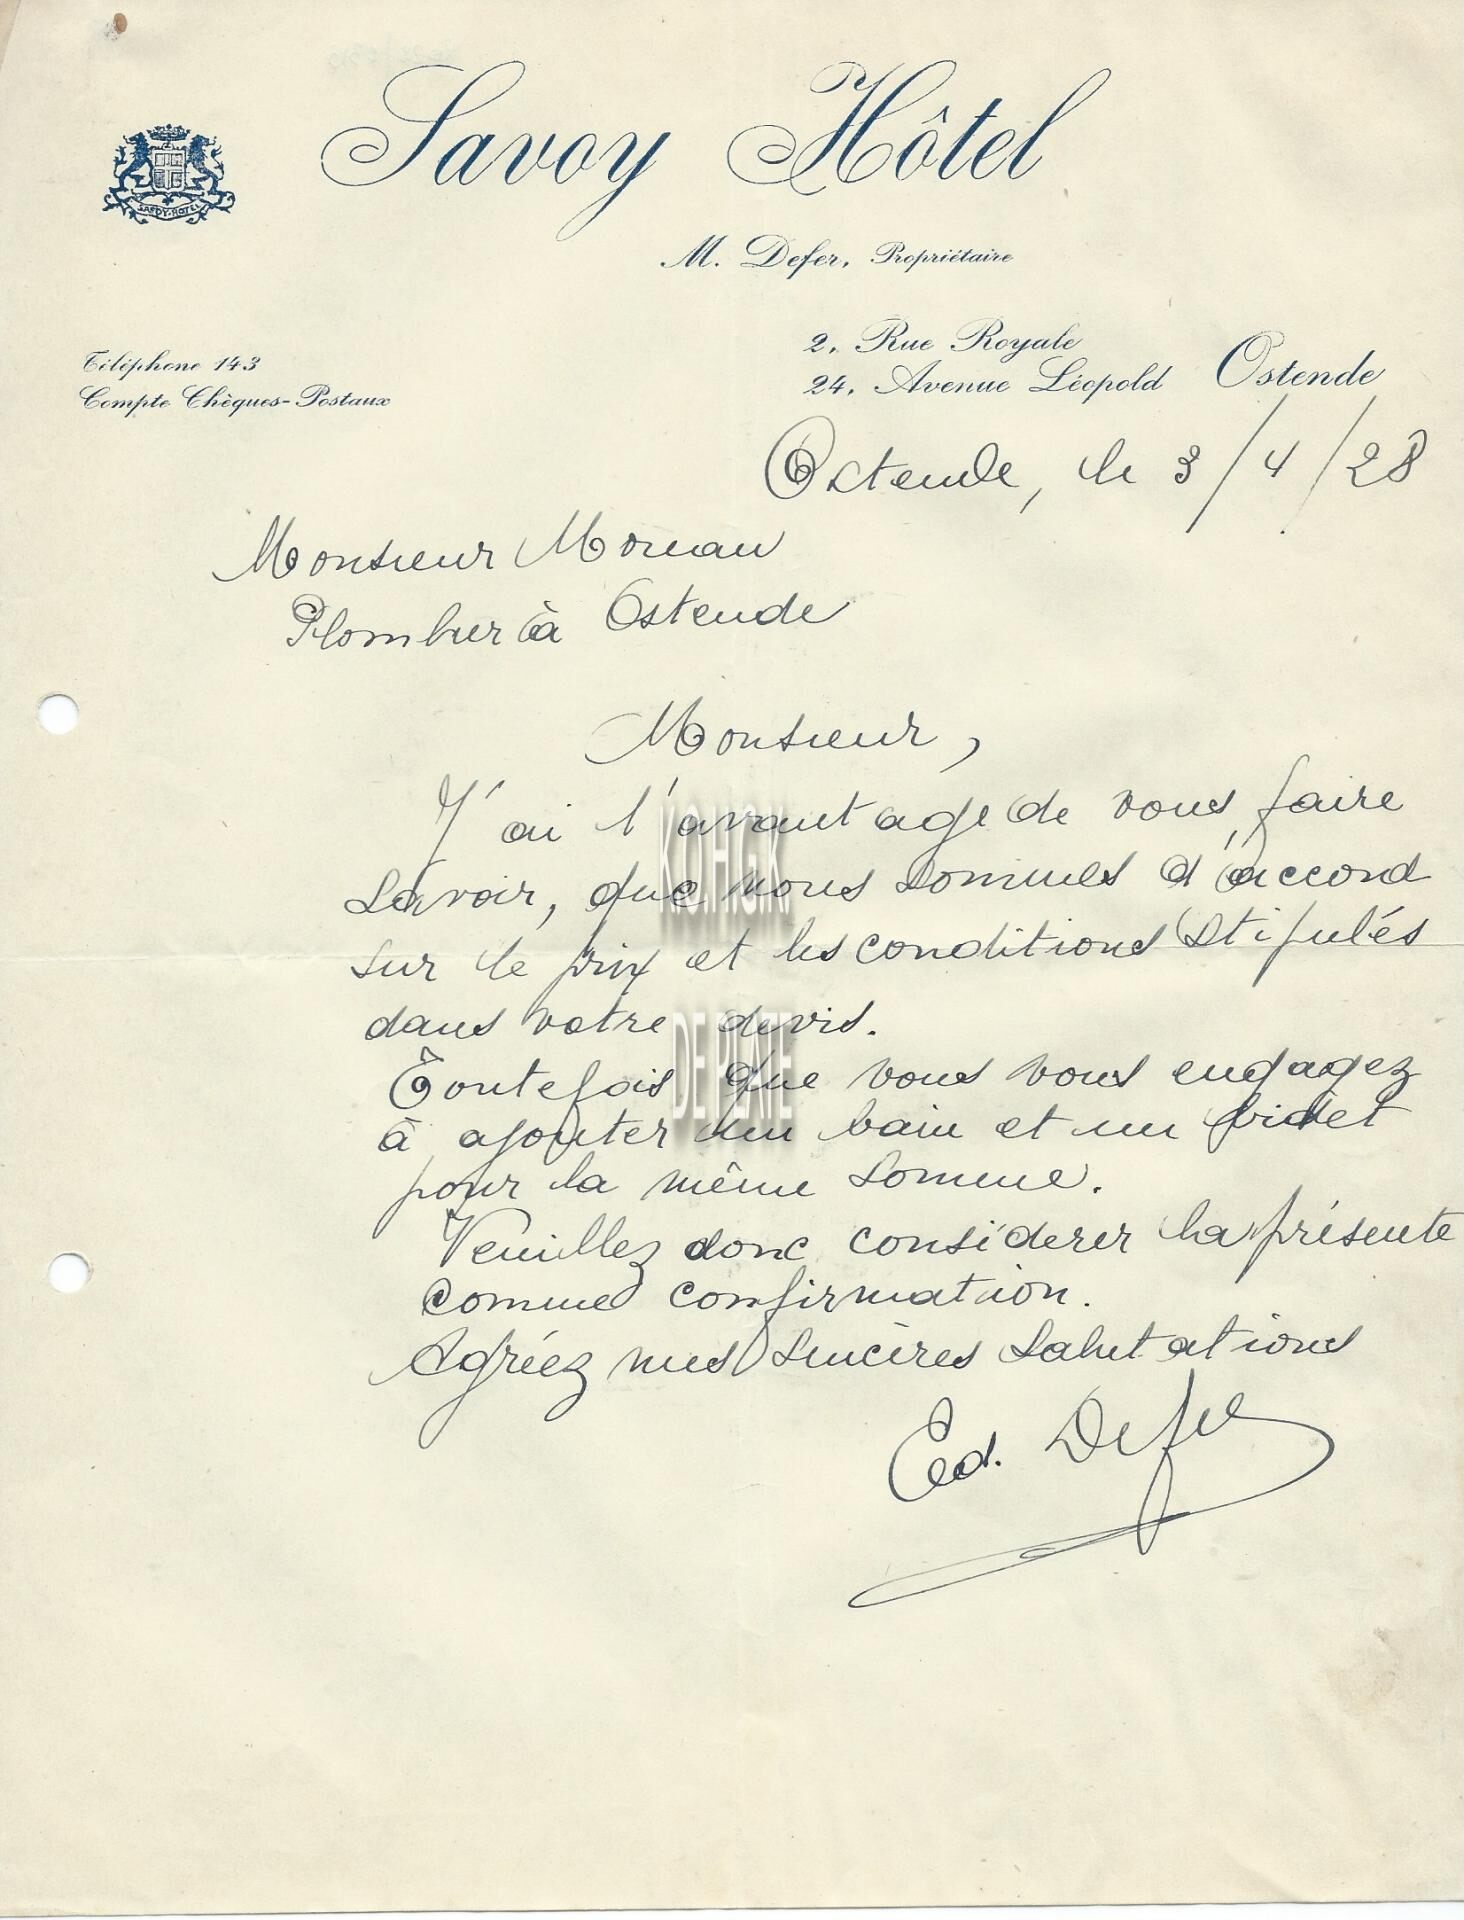 Savoy Hôtel
SAVOY-HOTEL
M. Defer, Propriétaire
2, Rue Royale
24, Avenue Léopold Ostende
Téléphone 143
Compte Chèques-Postaux
Ostende, le 3/4/28
Monsieur Moreau
Plombier à Ostende
Monsieur,
J'ai l'avantage de vous faire
savoir, que nous sommes d'accord
sur le prix et les conditions stipulés
dans votre devis.
Toutefois que vous vous engagez
à ajouter un bain et un bidet
pour la même somme.
Veuillez donc considerer la présente
comme confirmation.
Agréez mes sincères salutations
Ed. Defer
KOHGK
DE PLATE